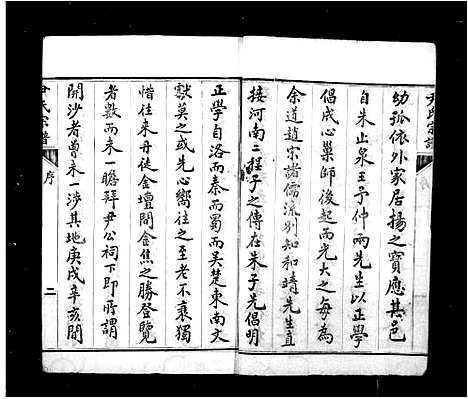 尹氏宗譜
幼孤依外家居揚之寶應其邑
自朱止泉王予仲兩先生以正學
倡成心巢師後起而光大之每為
余道趙宋諸儒流別知和靖先生直
接河南二程子之傳在朱子先倡明
正學自洛而秦而蜀而吴楚東南文
獻莫之或先心嚮往之至老不衰獨
惜往来丹徒金壇間金焦之勝登覽
者數而未一瞻拜尹公祠下即所謂
開沙者曾未一涉其地庚戌辛亥間
尹氏宗譜
序
二